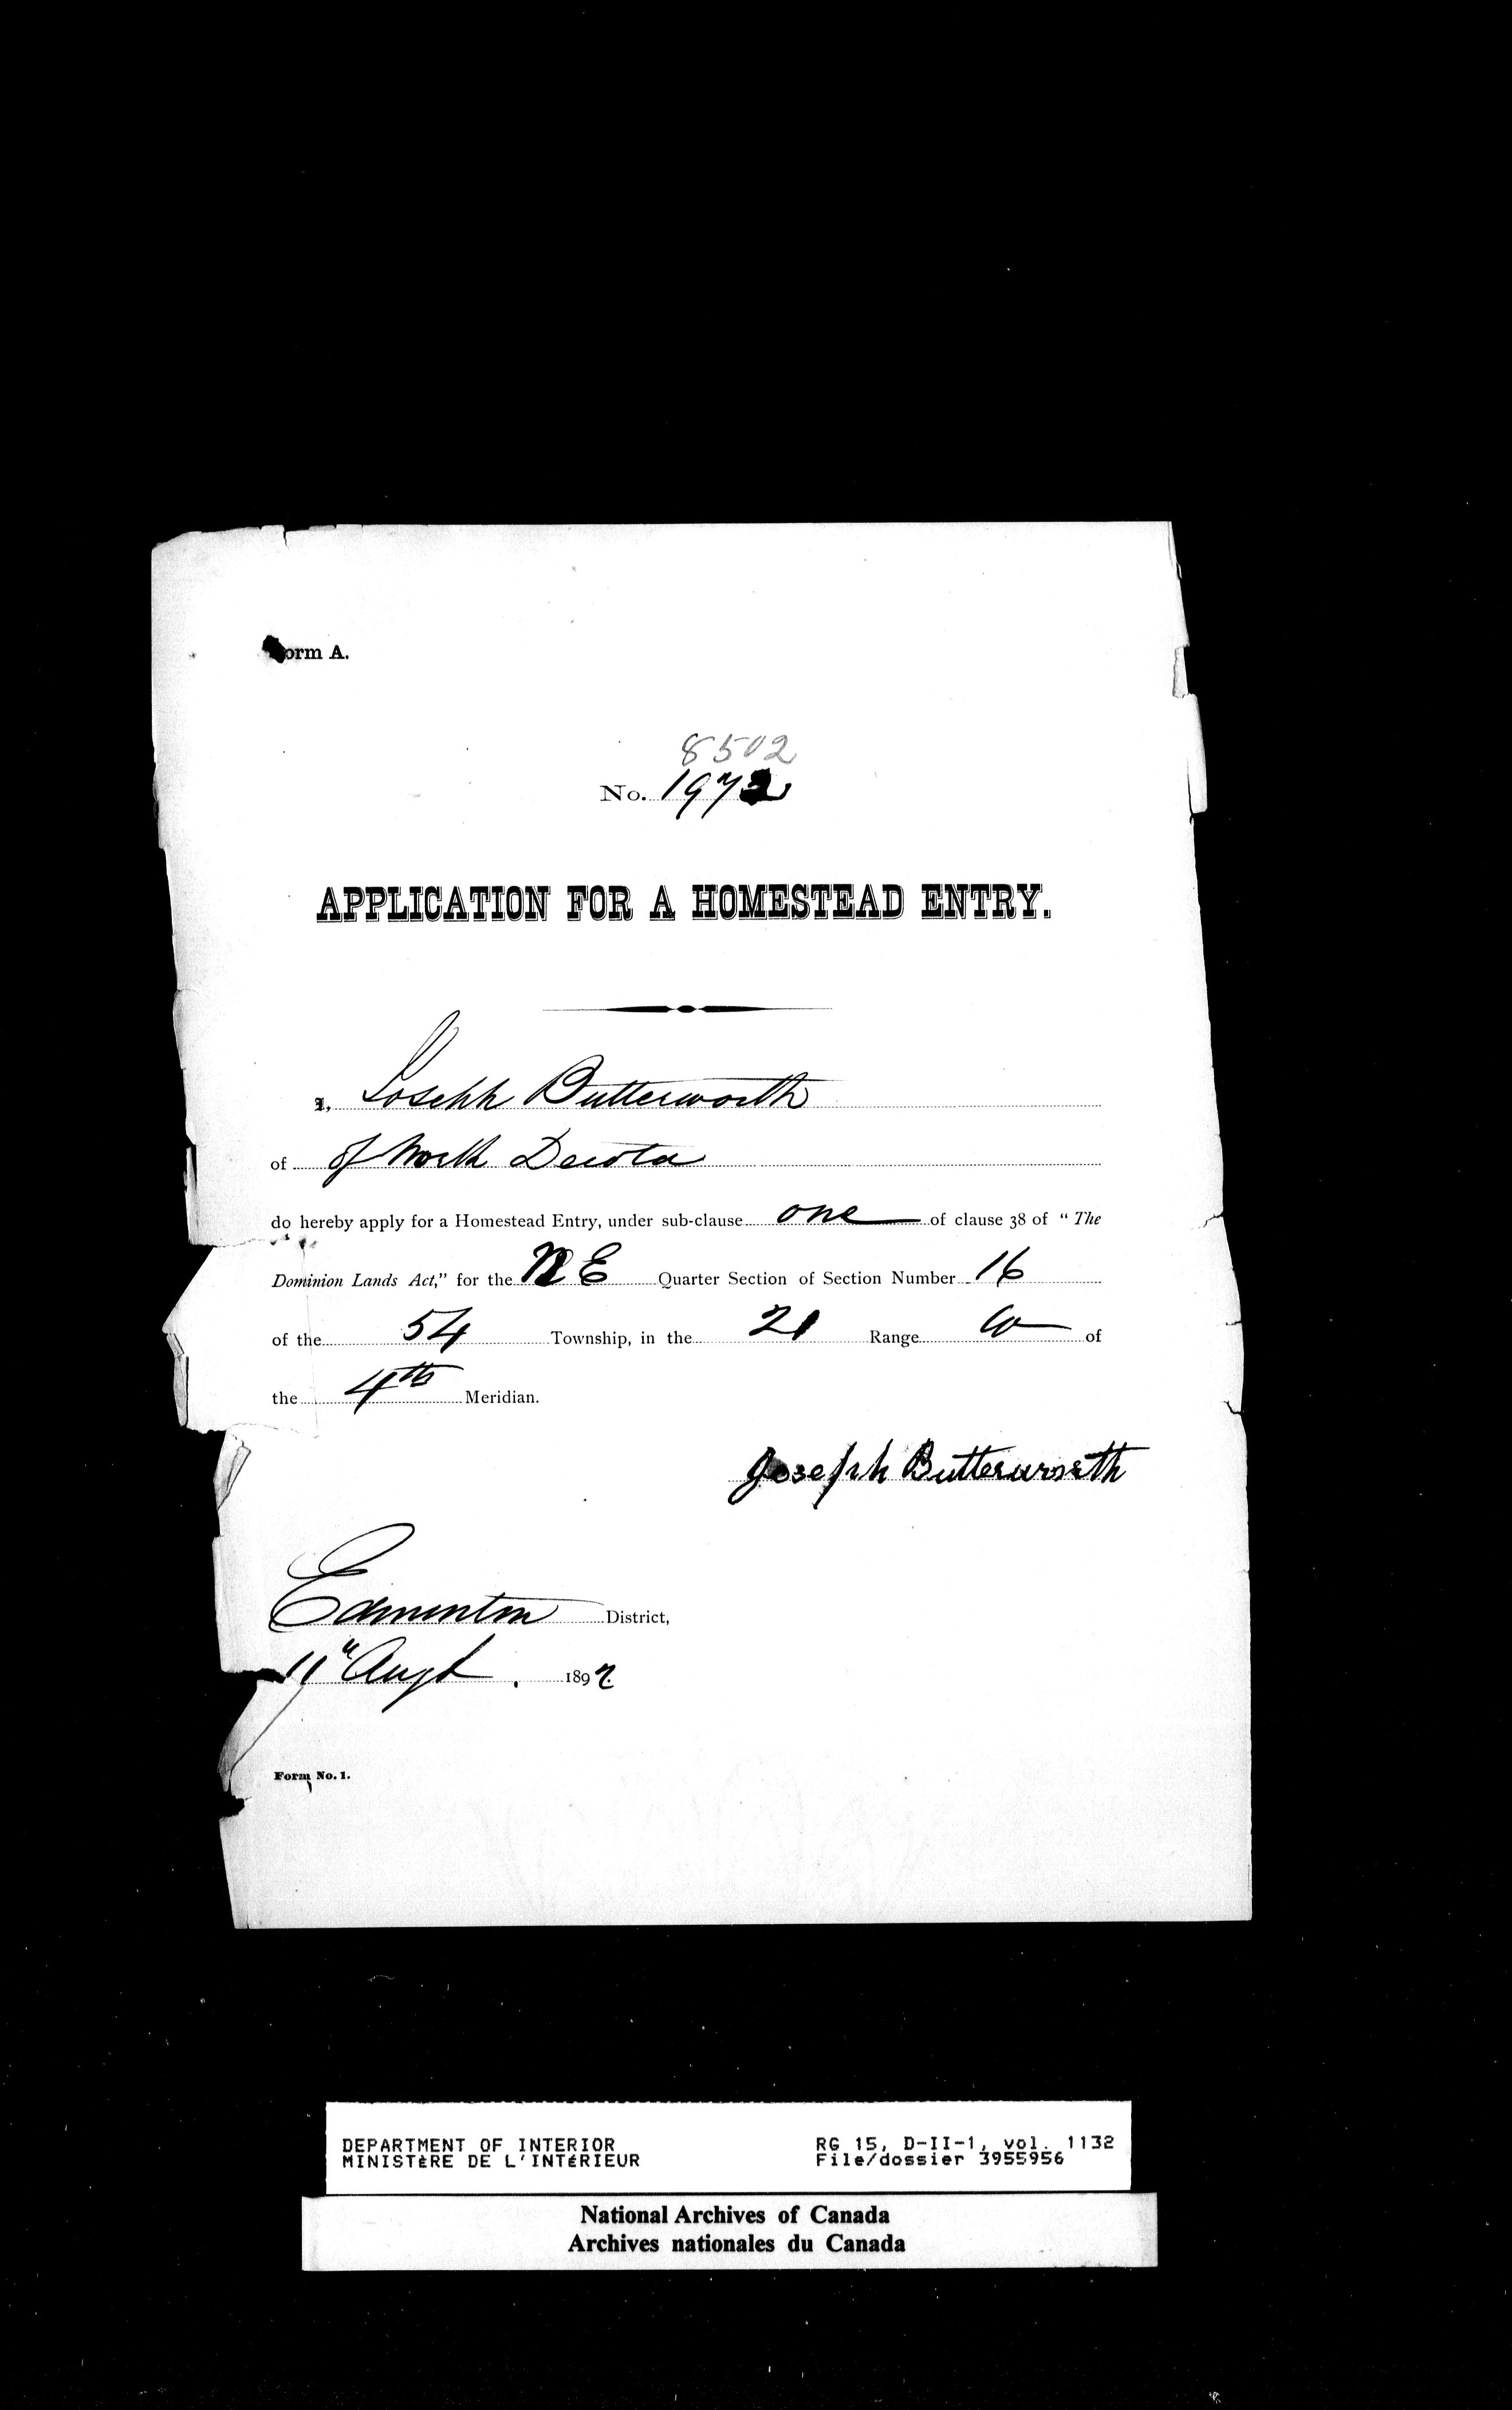 Form A.
8502
No. 1972
APPLICATION FOR A HOMESTEAD ENTRY.
I, Joseph Butterworth
of of North Decota
do hereby apply for a Homestead Entry, under sub-clause one of clause 38 of "The
Dominion Lands Act," for the NE Quarter Section of Section Number 16
of the 54 Township, in the 21 Range W of
the 4th Meridian.
Joseph Butterworth
Edmonton District,
11" Augt. 1892.
Form No. 1.
DEPARTMENT OF INTERIOR RG 15, D-II-1, vol. 1132
MINISTÈRE DE L'INTÉRIEUR File/dossier 3955956
National Archives of Canada
Archives nationales du Canada